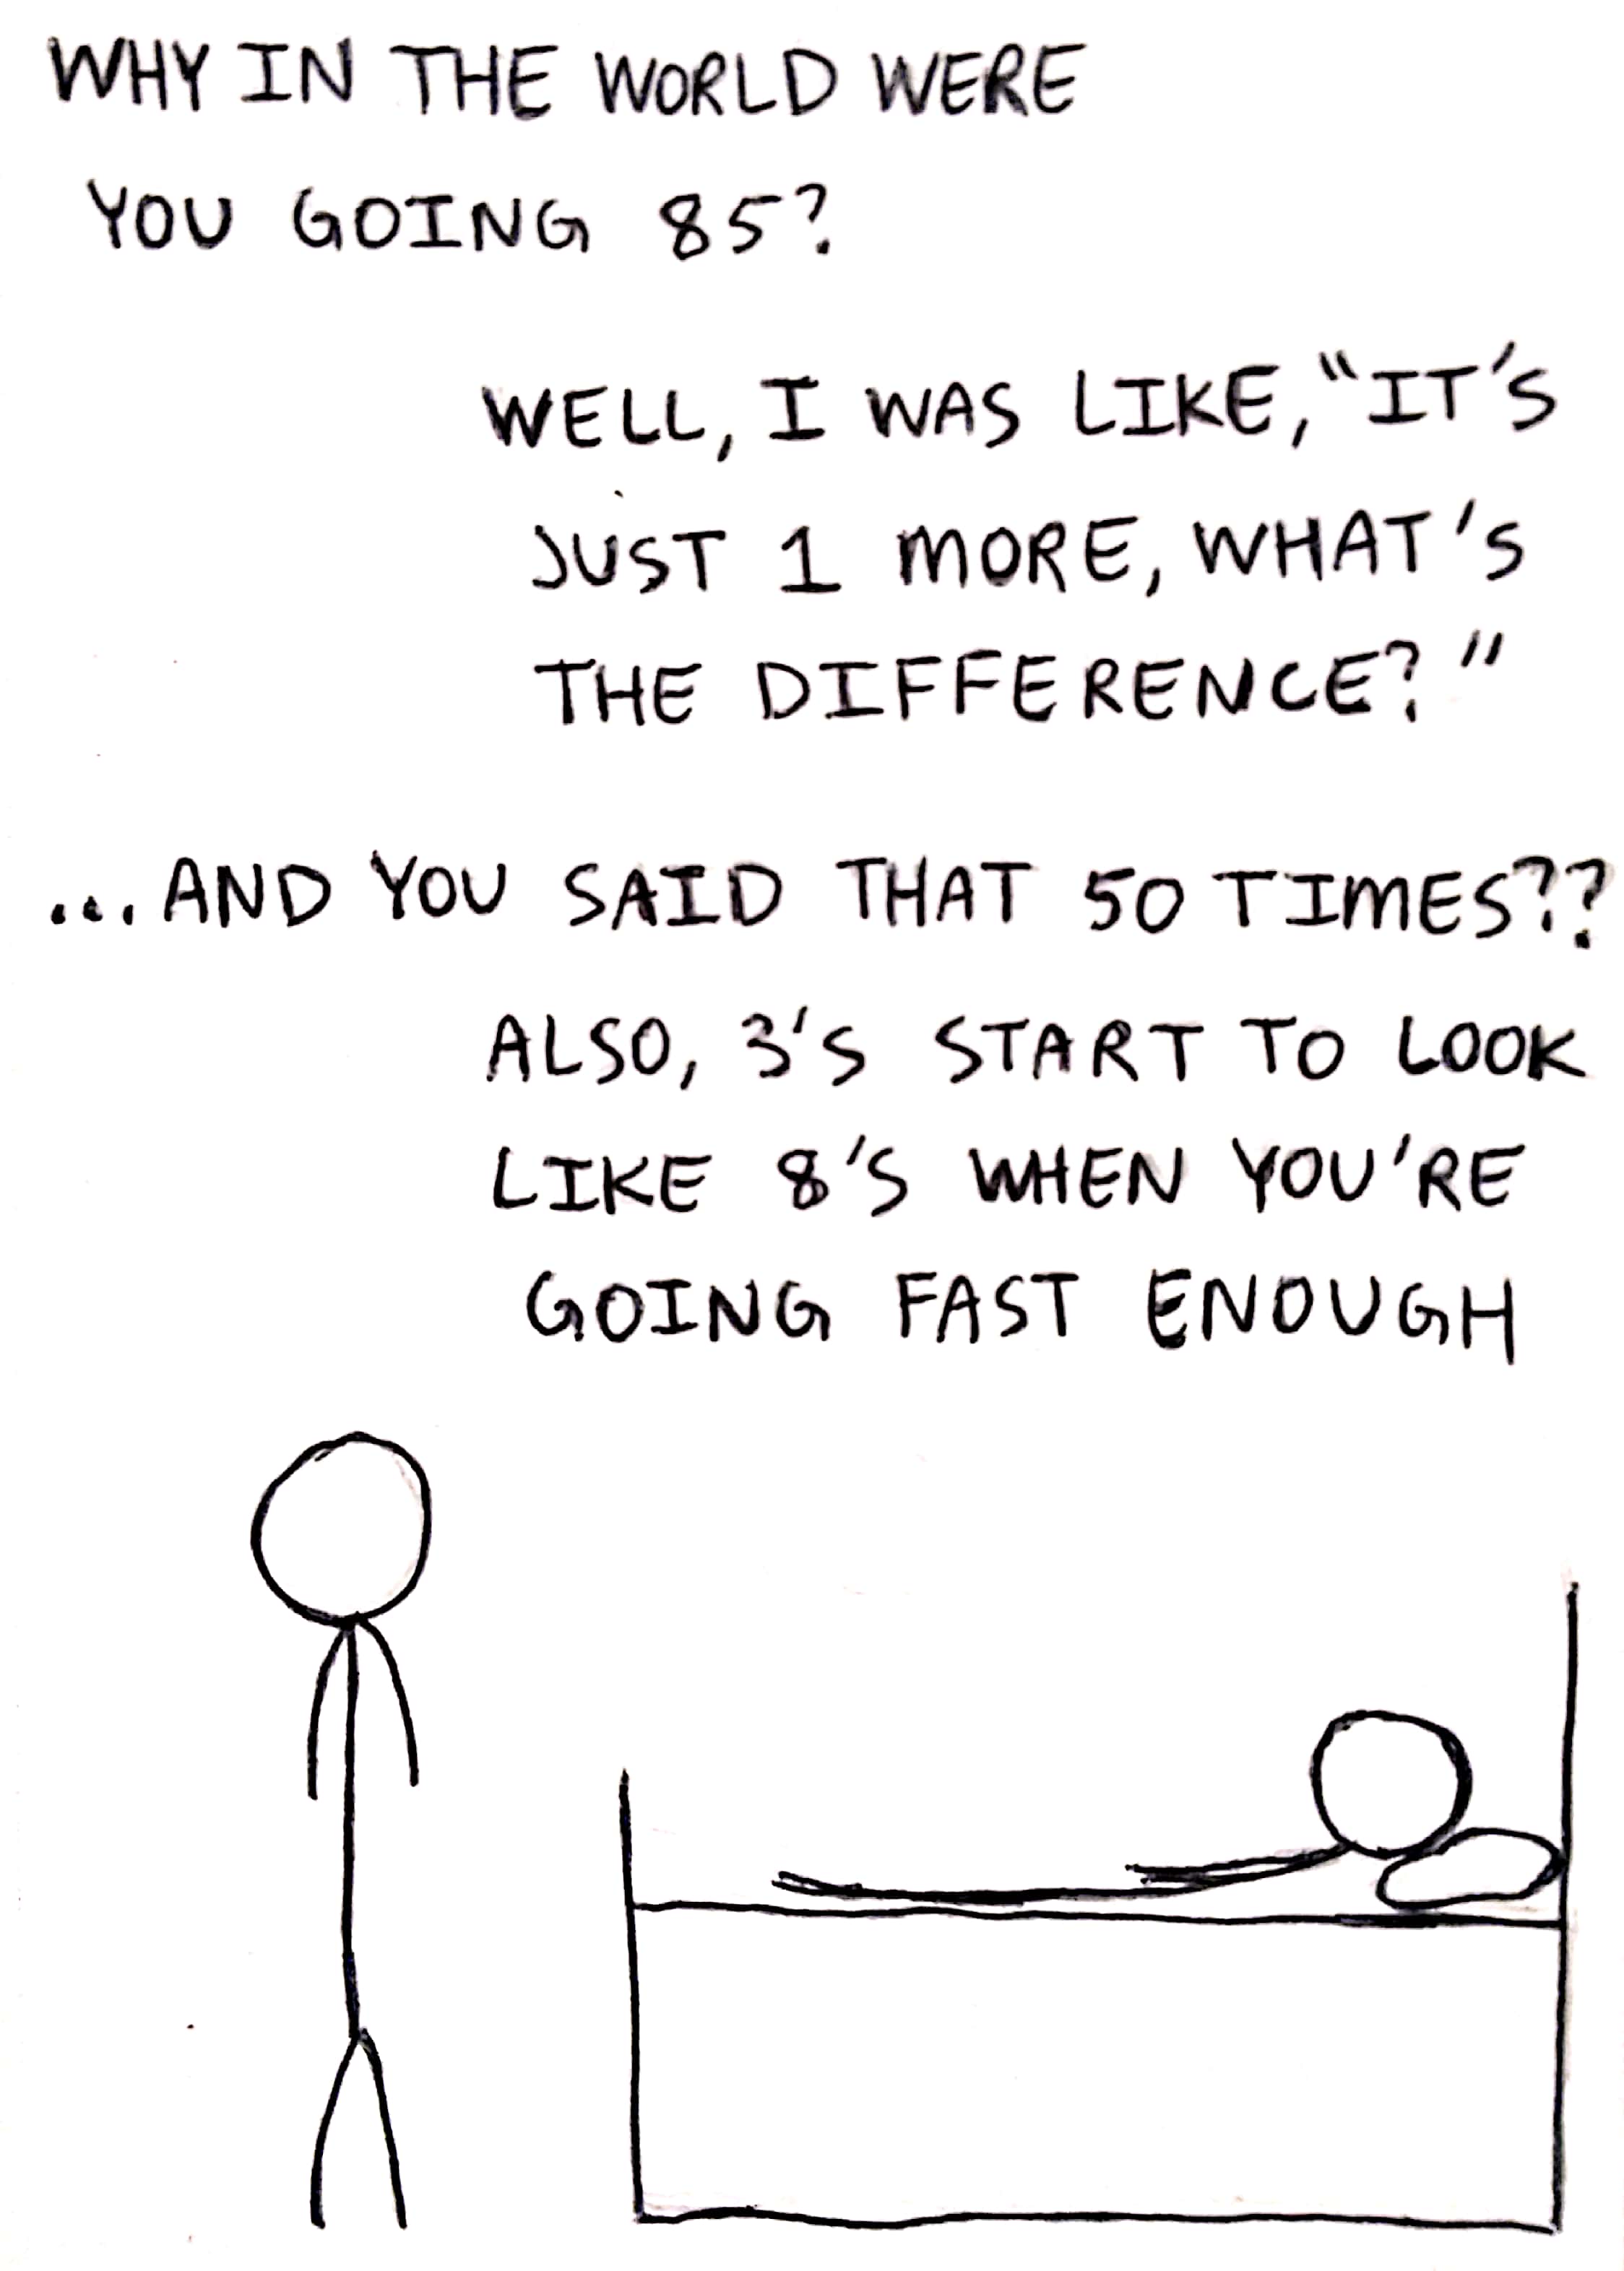 WHY IN THE WORLD WERE
YOU GOING 85?
WELL, I WAS LIKE, "IT'S
JUST 1 MORE, WHAT'S
THE DIFFERENCE?"
...AND YOU SAID THAT 50 TIMES??
ALSO, 3'S START TO LOOK
LIKE 8'S WHEN YOU'RE
GOING FAST ENOUGH